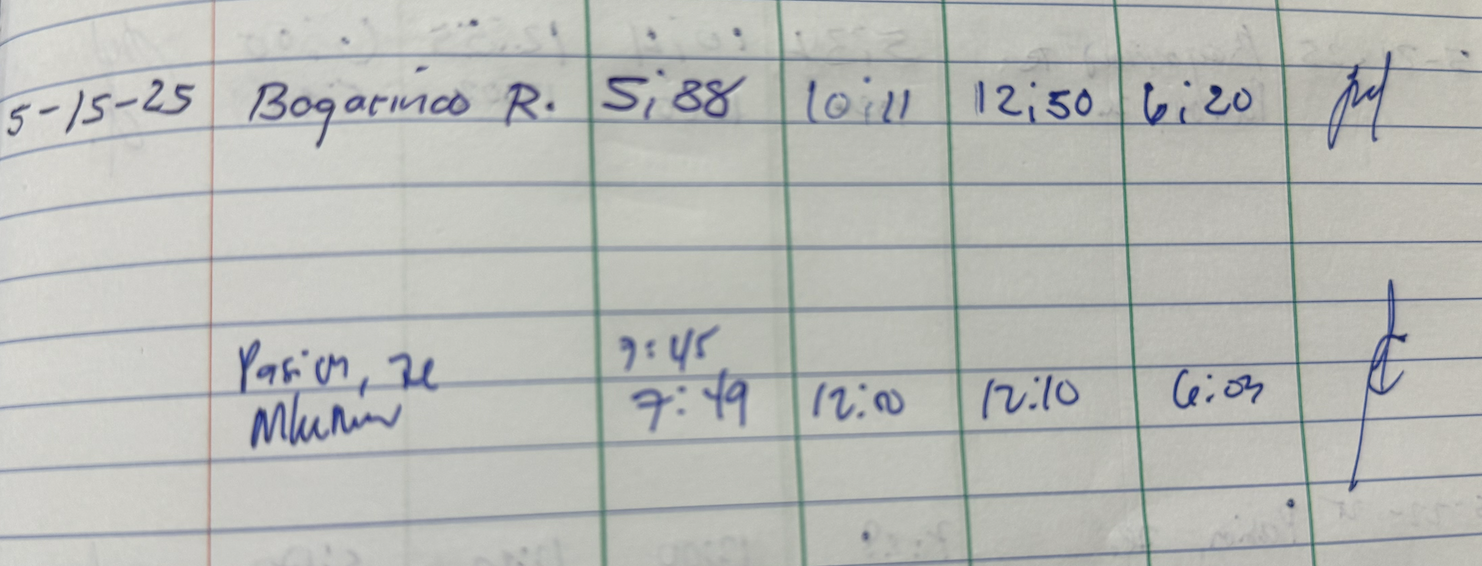 5-15-25 Bogarinao R. 5:38 10:11 12:50 6:20
7:45
Pasion, ze 7:49 12:00 12:10 6:03